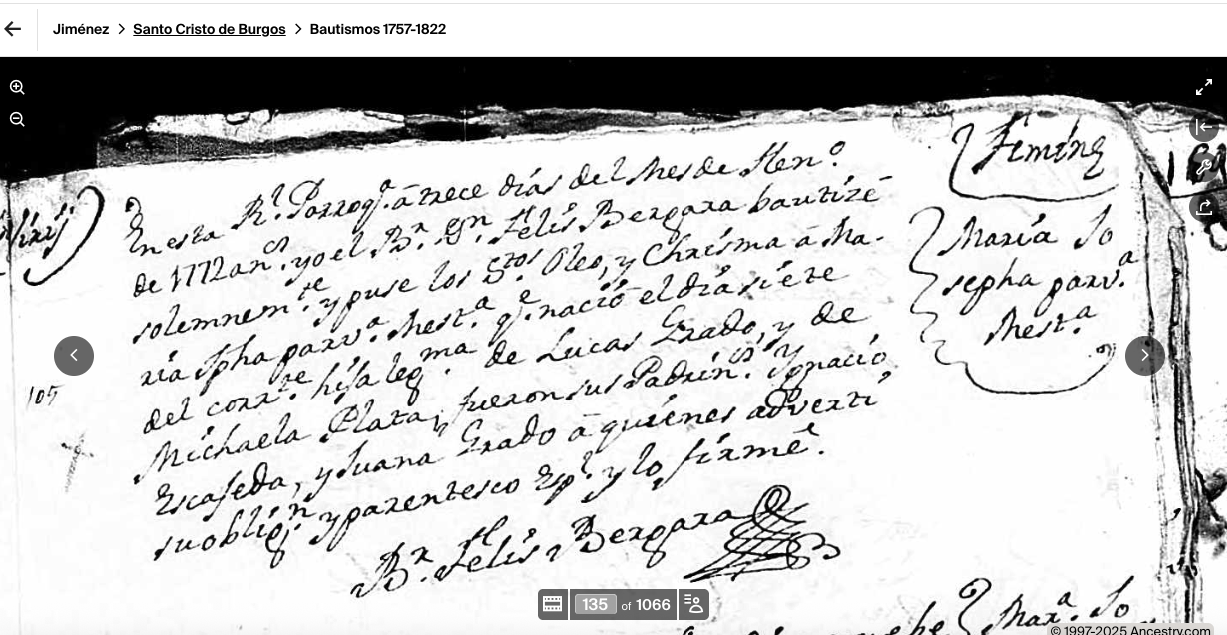 Jiménez > Santo Cristo de Burgos > Bautismos 1757-1822
Ximinz
En esta Rl. Parroqa. a trece días del Mes de Hen.o
de 1772 an.s yo el B.r Dn. Felis Bergara bautizé
solemnem.te y puse los S.tos Oleo, y Chrisma â Ma-
ria Jpha parv.a Mest.a q.e nació el día siete
del corr.te hija leg.ma de Lucas Grado, y de
Michaela Plata; fueron sus Padrin.s Ygnacio
Escaseda, y Juana Grado â quienes adverti
su oblig.n y parentesco Esp.l y lo firmê.
B.r Felis Bergara
Maria Jo
sepha parv.a
Mest.a
105
Mar.a Jo
135 of 1066
© 1997-2025 Ancestry.com